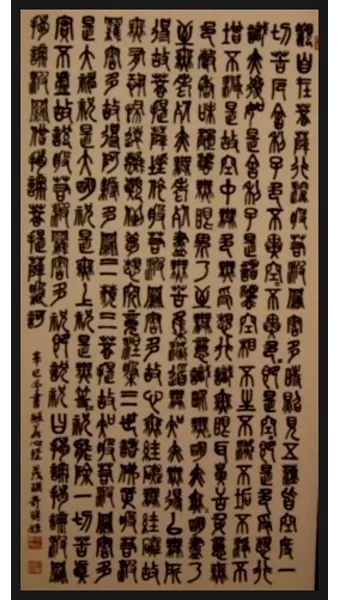 觀自在菩薩行深般若波羅蜜多時照見五蘊皆空度一
切苦厄舍利子色不異空空不異色色即是空空即是色受想行
識亦復如是舍利子是諸法空相不生不滅不垢不淨不
增不減是故空中無色無受想行識無眼耳鼻舌身意無
色聲香味觸法無眼界乃至無意識界無無明亦無無明盡乃
至無老死亦無老死盡無苦集滅道無智亦無得以無所
得故菩提薩埵依般若波羅蜜多故心無罣礙無罣礙故
無有恐怖遠離顛倒夢想究竟涅槃三世諸佛依般若
波羅蜜多故得阿耨多羅三藐三菩提故知般若波羅蜜多
是大神咒是大明咒是無上咒是無等等咒能除一切苦真
實不虛故說般若波羅蜜多咒即說咒曰揭諦揭諦波羅
揭諦波羅僧揭諦菩提薩婆訶 辛巳冬書 心經